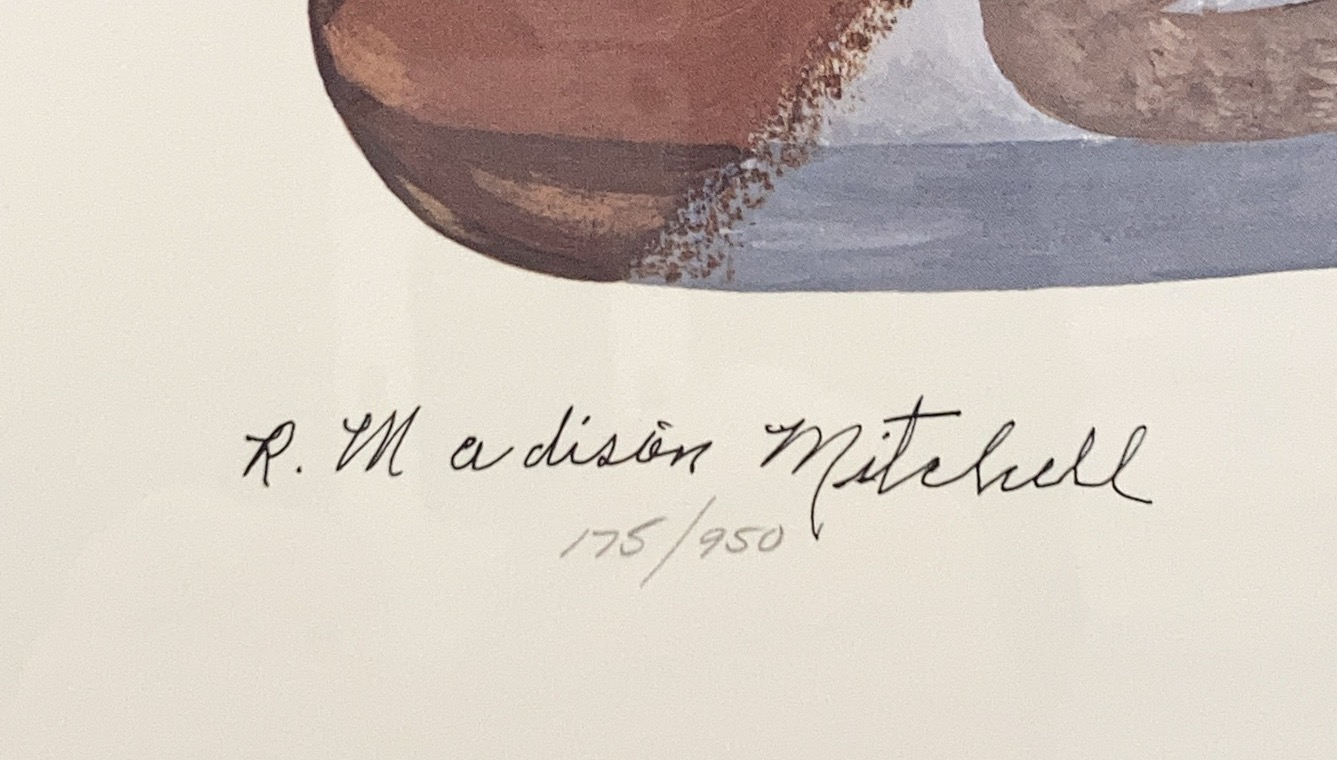 R. Madison Mitchell
175/950